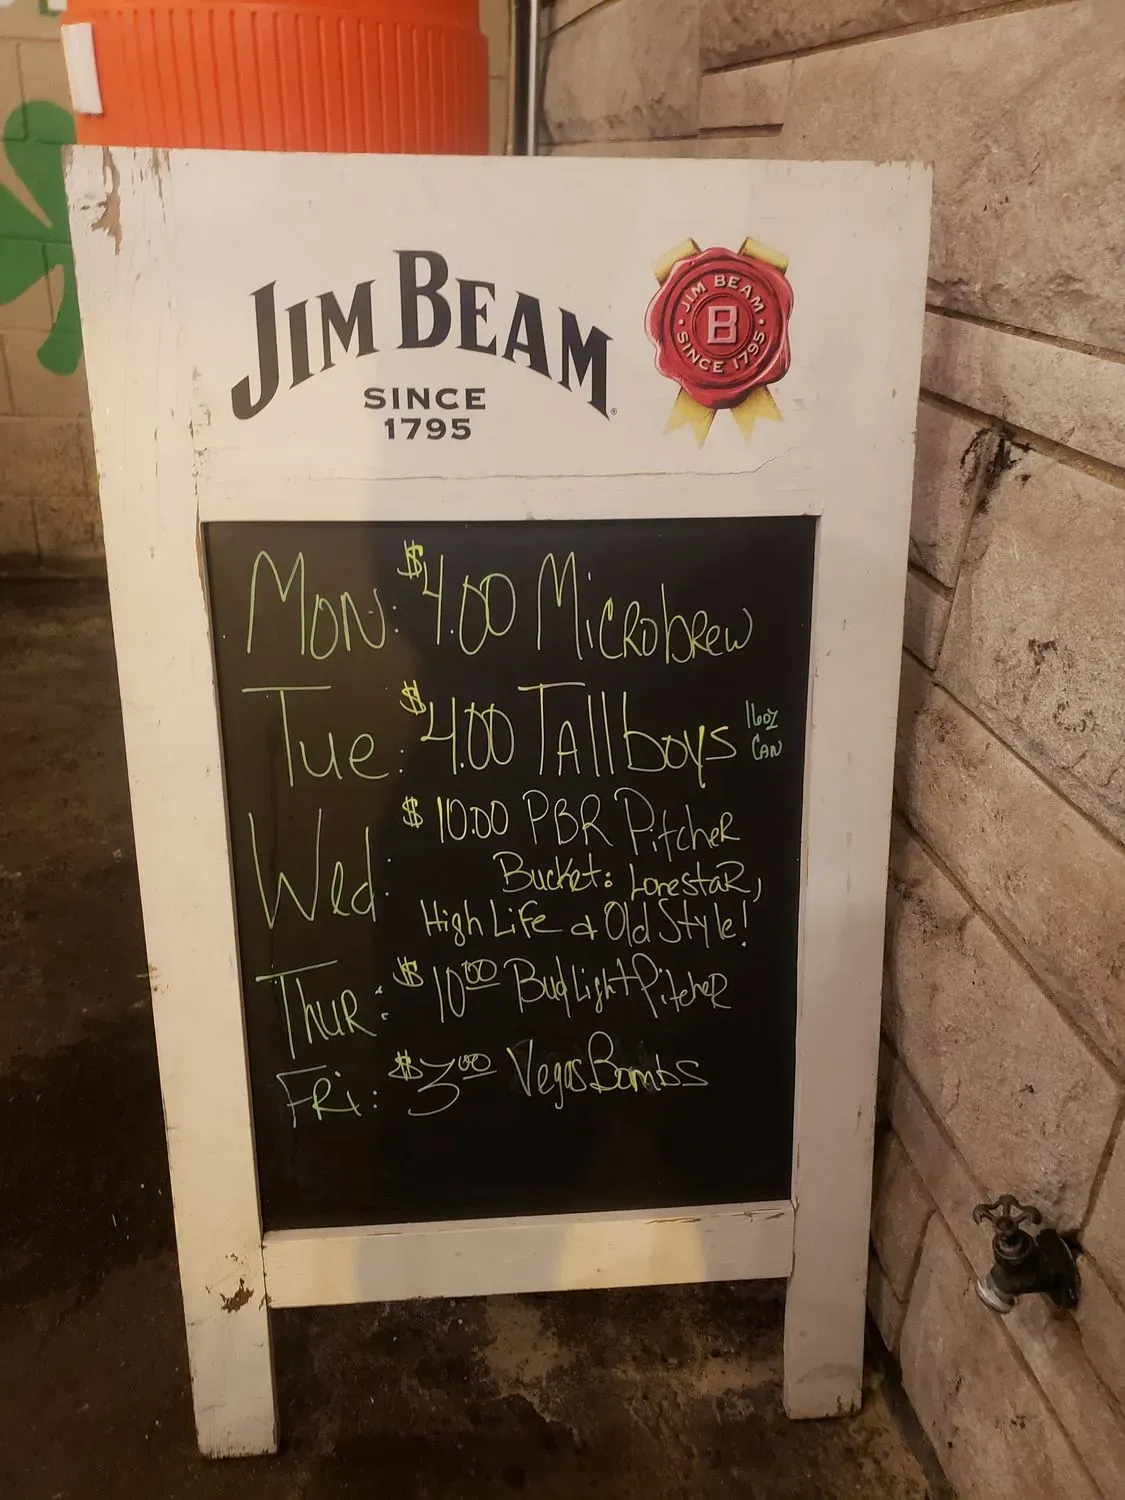 JIM BEAM
SINCE
1795
JIM BEAM
B
SINCE 1795
Mon: $4.00 Microbrew
Tue: $4.00 Tallboys 16oz
Can
Wed: $10.00 PBR Pitcher
Bucket: Lonestar,
High Life & Old Style!
Thur: $10.00 Bud Light Pitcher
Fri: $3.00 Vegas Bombs